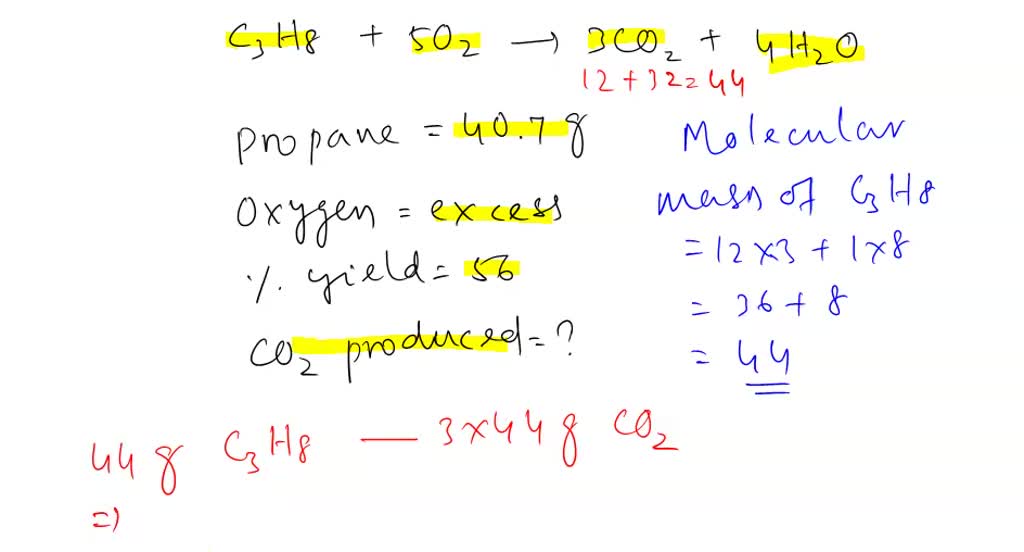 C3H8 + 5O2 → 3CO2 + 4H2O
12 + 32 = 44
Propane = 40.7 g
Oxygen = excess
%. yield = 56
CO2 produced = ?
Molecular
mass of C3H8
= 12 x 3 + 1 x 8
= 36 + 8
= 44
44 g C3H8 — 3 x 44 g CO2
=)